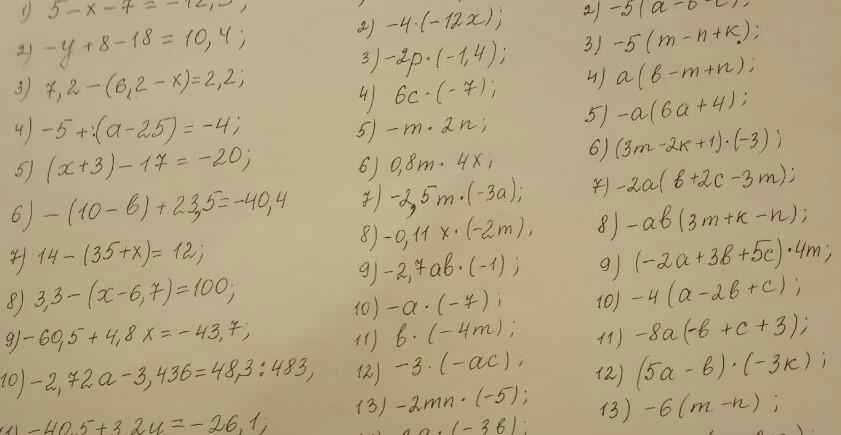 1) 5 – x – 7 = –12,5;
2) –y + 8 – 18 = 10,4;
3) 7,2 – (6,2 – x) = 2,2;
4) –5 + (a – 25) = –4;
5) (x + 3) – 17 = –20;
6) –(10 – в) + 23,5 = –40,4
7) 14 – (35 + x) = 12;
8) 3,3 – (x – 6,7) = 100;
9) –60,5 + 4,8x = –43,7;
10) –2,72a – 3,436 = 48,3 : 483,
11) –40,5 + 3,2y = –26,1;
2) –4·(–12x);
3) –2p·(–1,4);
4) 6c·(–7);
5) –m·2n;
6) 0,8m·4x;
7) –2,5m·(–3a);
8) –0,11x·(–2m),
9) –2,7aв·(–1);
10) –a·(–7);
11) в·(–4m);
12) –3·(–ac);
13) –2mn·(–5);
2) –5(a – в – c);
3) –5(m – n + к);
4) a(в – m + n);
5) –a(6a + 4);
6) (3m – 2к + 1)·(–3);
7) –2a(в + 2c – 3m);
8) –aв(3m + к – n);
9) (–2a + 3в + 5c)·4m;
10) –4(a – 2в + c);
11) –8a(–в + c + 3);
12) (5a – в)·(–3к);
13) –6(m – n);